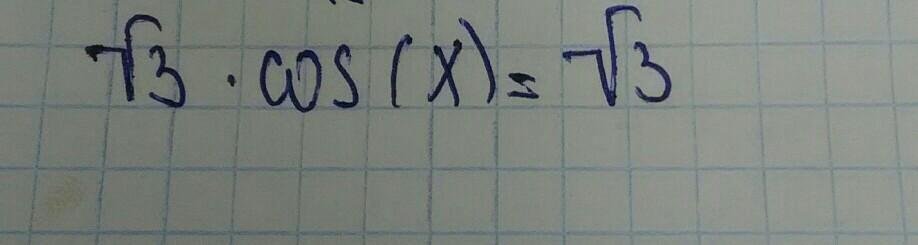 √3 · cos(x) = √3